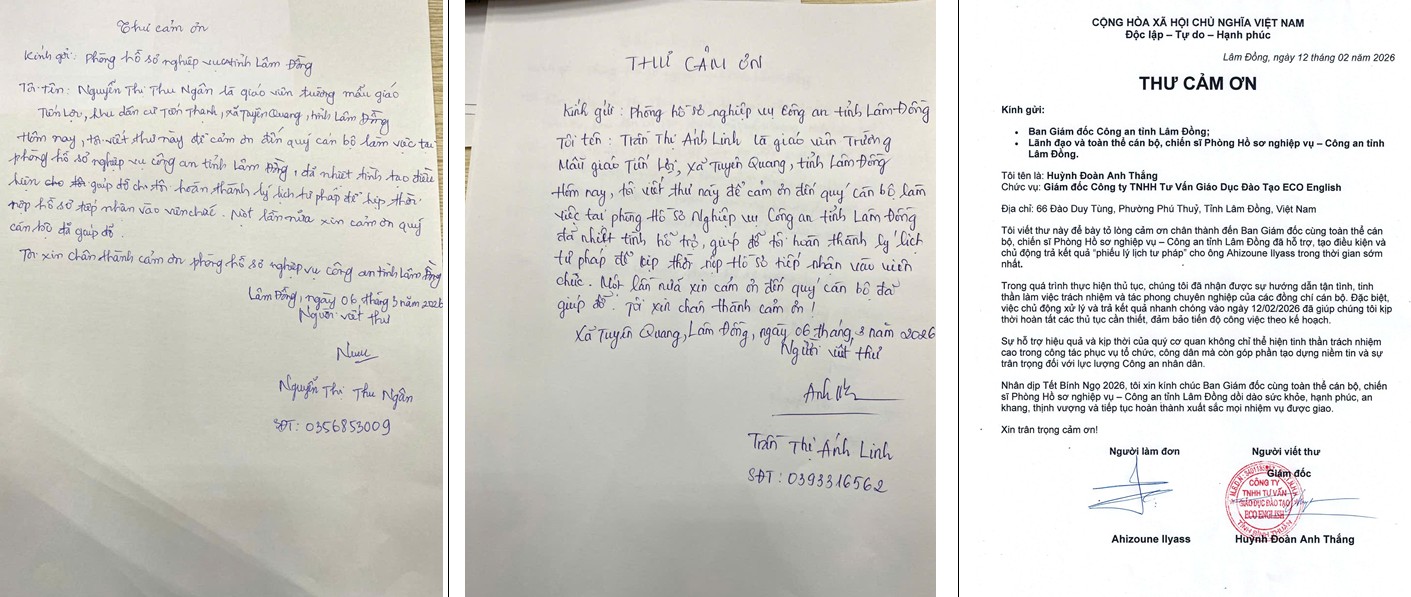 Thư cảm ơn
Kính gởi: Phòng hồ sơ nghiệp vụ CA tỉnh Lâm Đồng
Tôi tên: Nguyễn Thị Thu Ngân là giáo viên trường mẫu giáo
Tiến Lợi, khu dân cư Tiến Thạnh, xã Tuyên Quang, tỉnh Lâm Đồng
Hôm nay, tôi viết thư này để cảm ơn đến quý cán bộ làm việc tại
phòng hồ sơ nghiệp vụ công an tỉnh Lâm Đồng, đã nhiệt tình tạo điều
kiện giúp đỡ cho tôi hoàn thành lý lịch tư pháp để kịp thời
nộp hồ sơ tiếp nhận vào viên chức. Một lần nữa xin cảm ơn quý
cán bộ đã giúp đỡ.
Tôi xin chân thành cảm ơn phòng hồ sơ nghiệp vụ công an tỉnh Lâm Đồng
Lâm Đồng, ngày 06, tháng 3 năm 2026
Người viết thư
Nguyễn Thị Thu Ngân
SĐT: 0356853009
THƯ CẢM ƠN
Kính gửi: Phòng hồ sơ nghiệp vụ Công an tỉnh Lâm Đồng
Tôi tên: Trần Thị Ánh Linh là giáo viên Trường
Mẫu giáo Tiến Lợi, xã Tuyên Quang, tỉnh Lâm Đồng
Hôm nay, tôi viết thư này để cảm ơn đến quý cán bộ làm
việc tại phòng Hồ sơ Nghiệp vụ Công an tỉnh Lâm Đồng
đã nhiệt tình hỗ trợ, giúp đỡ tôi hoàn thành lý lịch
tư pháp để kịp thời nộp Hồ sơ tiếp nhận vào viên
chức. Một lần nữa xin cảm ơn đến quý cán bộ đã
giúp đỡ. Tôi xin chân thành cảm ơn!
Xã Tuyên Quang, Lâm Đồng, ngày 06 tháng 3 năm 2026
Người viết thư
Trần Thị Ánh Linh
SĐT: 0393316562
CỘNG HÒA XÃ HỘI CHỦ NGHĨA VIỆT NAM
Độc lập – Tự do – Hạnh phúc
Lâm Đồng, ngày 12 tháng 02 năm 2026
THƯ CẢM ƠN
Kính gửi:
• Ban Giám đốc Công an tỉnh Lâm Đồng;
• Lãnh đạo và toàn thể cán bộ, chiến sĩ Phòng Hồ sơ nghiệp vụ – Công an tỉnh
Lâm Đồng.
Tôi tên là: Huỳnh Đoàn Anh Thắng
Chức vụ: Giám đốc Công ty TNHH Tư Vấn Giáo Dục Đào Tạo ECO English
Địa chỉ: 66 Đào Duy Tùng, Phường Phú Thuỷ, Tỉnh Lâm Đồng, Việt Nam
Tôi viết thư này để bày tỏ lòng cảm ơn chân thành đến Ban Giám đốc cùng toàn thể cán
bộ, chiến sĩ Phòng Hồ sơ nghiệp vụ – Công an tỉnh Lâm Đồng đã hỗ trợ, tạo điều kiện và
chủ động trả kết quả "phiếu lý lịch tư pháp" cho ông Ahizoune Ilyass trong thời gian sớm
nhất.
Trong quá trình thực hiện thủ tục, chúng tôi đã nhận được sự hướng dẫn tận tình, tinh
thần làm việc trách nhiệm và tác phong chuyên nghiệp của các đồng chí cán bộ. Đặc biệt,
việc chủ động xử lý và trả kết quả nhanh chóng vào ngày 12/02/2026 đã giúp chúng tôi kịp
thời hoàn tất các thủ tục cần thiết, đảm bảo tiến độ công việc theo kế hoạch.
Sự hỗ trợ hiệu quả và kịp thời của quý cơ quan không chỉ thể hiện tinh thần trách nhiệm
cao trong công tác phục vụ tổ chức, công dân mà còn góp phần tạo dựng niềm tin và sự
trân trọng đối với lực lượng Công an nhân dân.
Nhân dịp Tết Bính Ngọ 2026, tôi xin kính chúc Ban Giám đốc cùng toàn thể cán bộ, chiến
sĩ Phòng Hồ sơ nghiệp vụ – Công an tỉnh Lâm Đồng dồi dào sức khỏe, hạnh phúc, an
khang, thịnh vượng và tiếp tục hoàn thành xuất sắc mọi nhiệm vụ được giao.
Xin trân trọng cảm ơn!
Người làm đơn
Người viết thư
Giám đốc
CÔNG TY
TNHH TƯ VẤN
GIÁO DỤC ĐÀO TẠO
ECO ENGLISH
Ahizoune Ilyass
Huỳnh Đoàn Anh Thắng